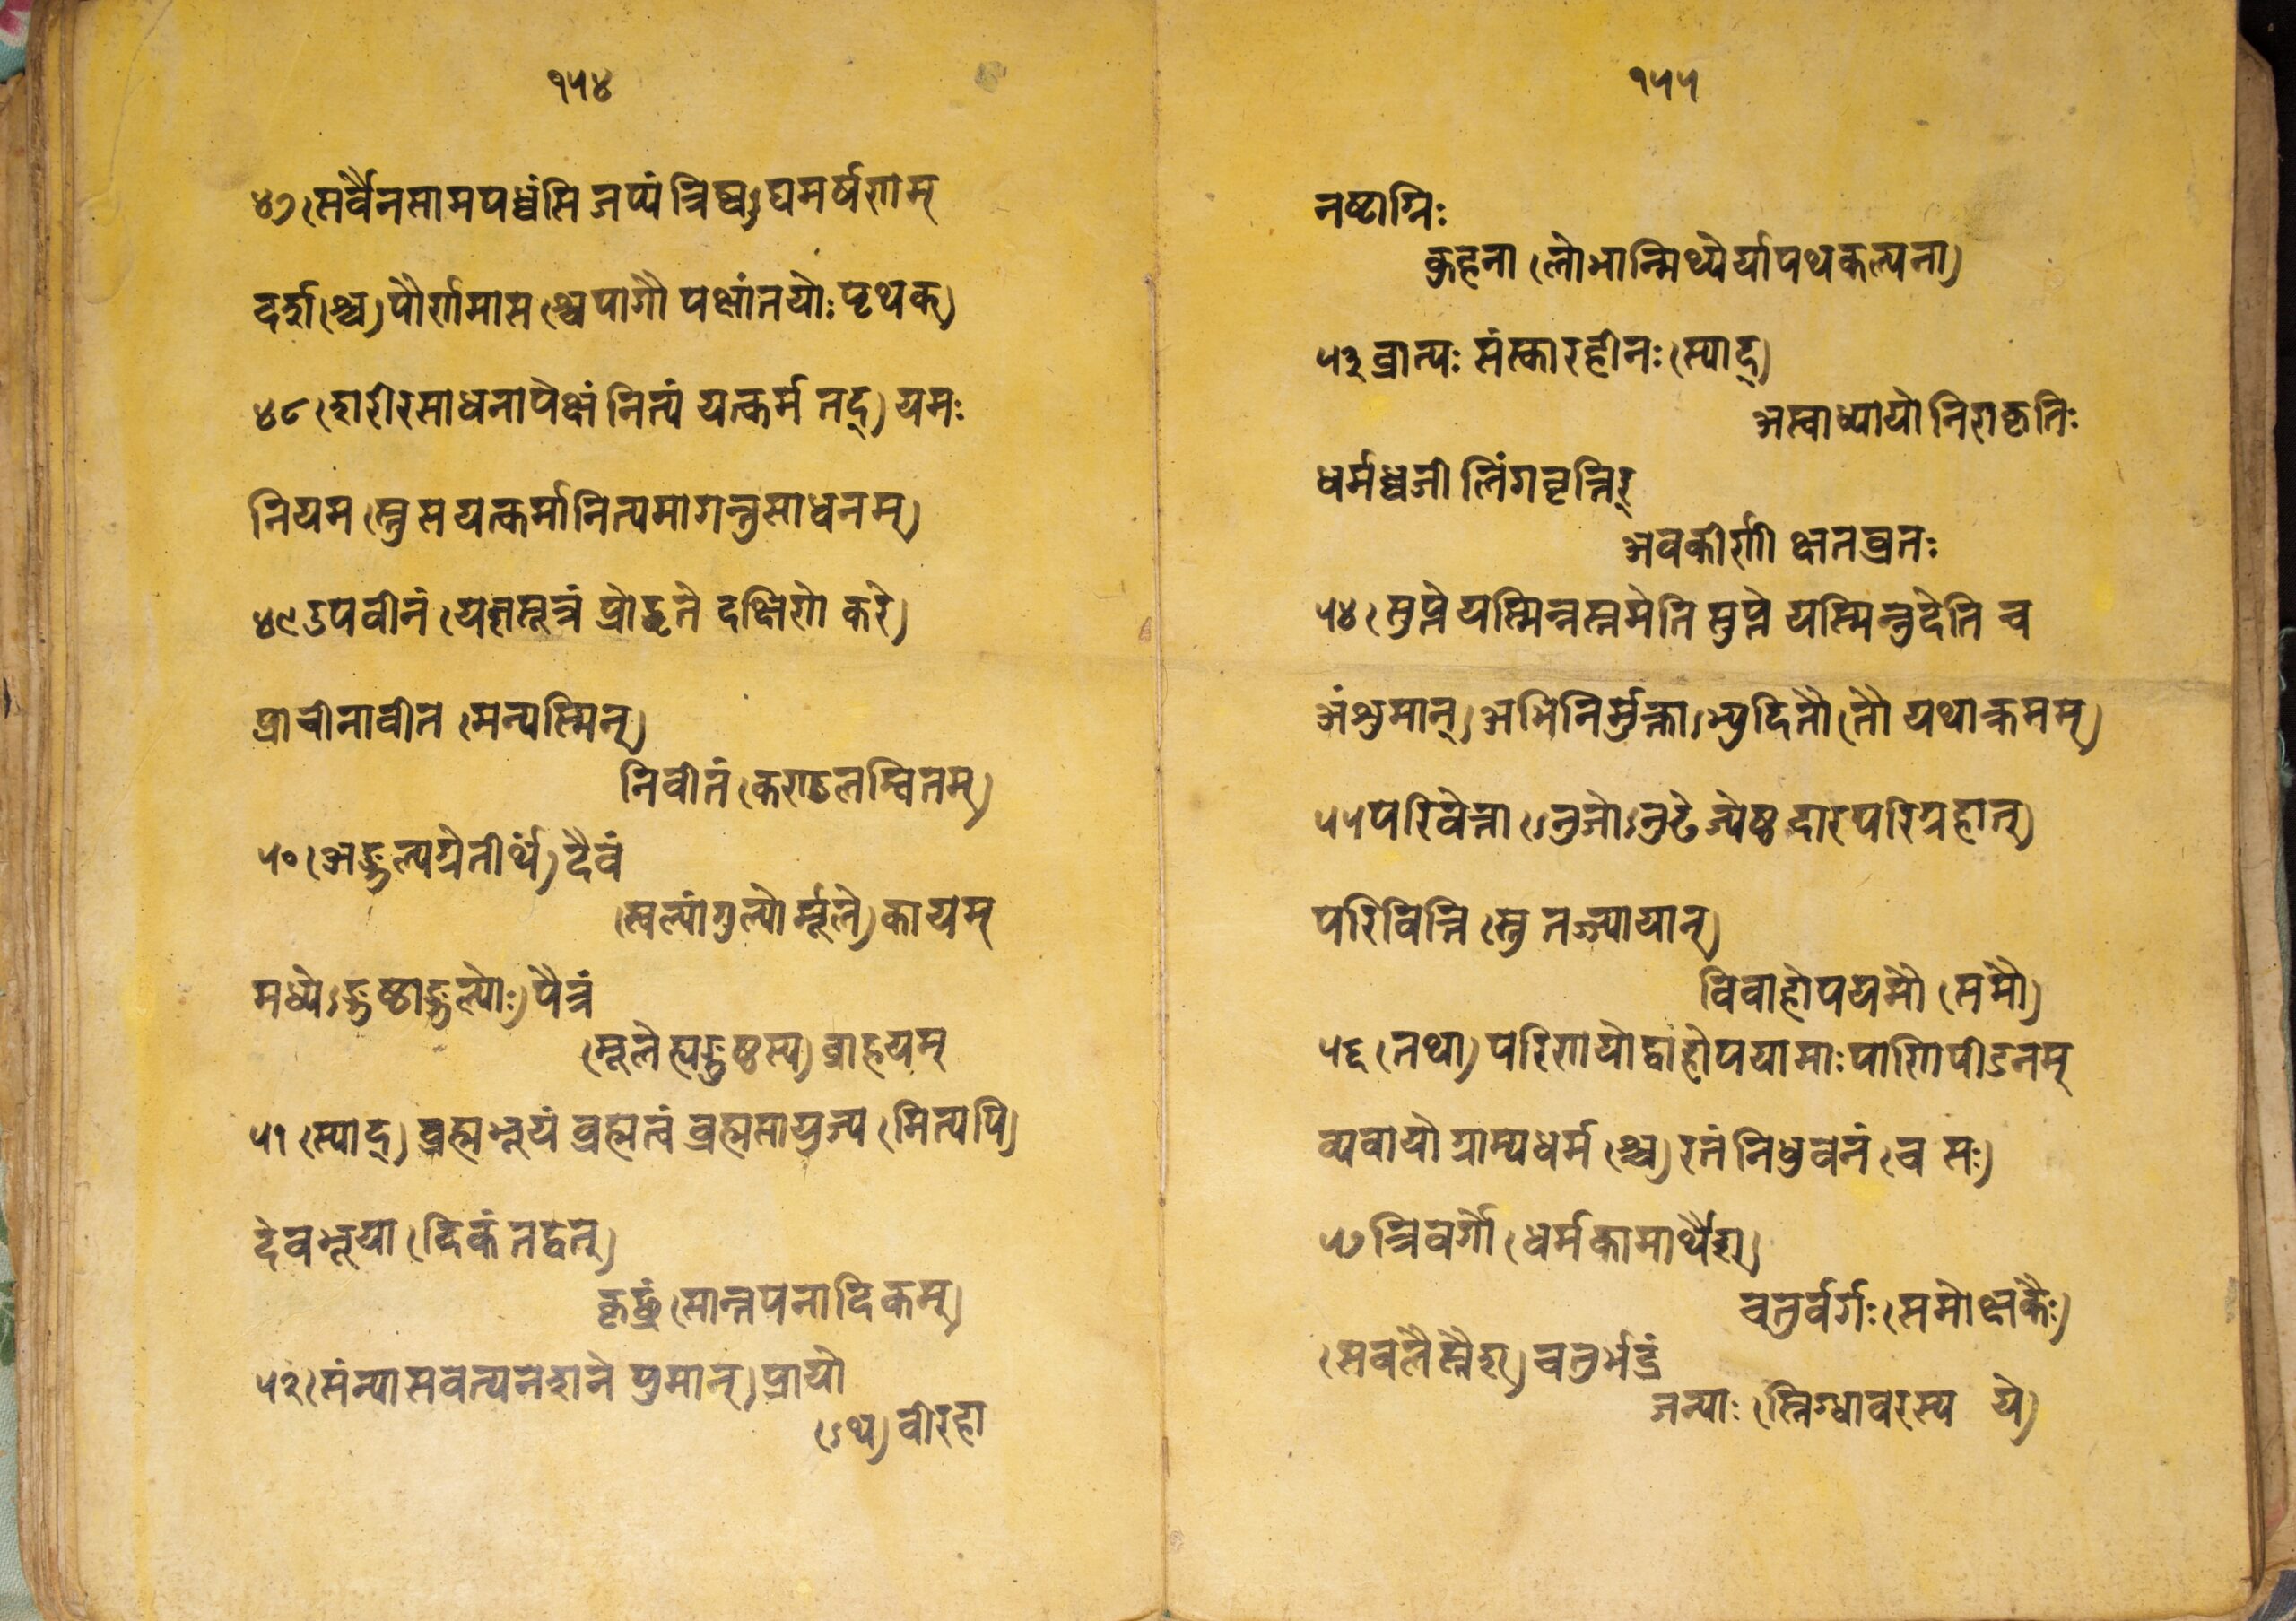 १५४
४७ (सर्वैनसामपध्वंसि जप्यं त्रिष्व)ऽघमर्षणम्
दर्श(श्च) पौर्णमास(श्च यागौ पक्षांतयोः पृथक्)
४८ (शरीरसाधनापेक्षं नित्यं यत्कर्म तद्) यमः
नियम(स्तु स यत्कर्मानित्यमागन्तुसाधनम्)
४९ उपवीतं (यज्ञसूत्रं प्रोद्धृते दक्षिणे करे)
प्राचीनावीत(मन्यस्मिन्)
निवीतं (कण्ठलम्बितम्)
५० (अङ्गुल्यग्रे तीर्थं) दैवं
(स्वल्पांगुल्योर्मूले) कायम्
मध्येऽङ्गुष्ठाङ्गुल्योः) पैत्रं
(मूले ह्यङ्गुष्ठस्य) ब्राह्मयम्
५१ (स्याद्) ब्रह्मभूयं ब्रह्मत्वं ब्रह्मसायुज्य(मित्यपि)
देवभूया(दिकं तद्वत्)
कृछ्रं (सान्तपनादिकम्)
५२ (संन्यासवत्यनशने पुमान्) प्रायो
(ऽथ) वीरहा
१५५
नष्टाग्निः
कुहना (लोभान्मिथ्येर्यापथकल्पना)
५३ व्रात्यः संस्कारहीनः (स्याद्)
अस्वाध्यायो निराकृतिः
धर्मध्वजी लिंगवृत्तिर्
अवकीर्णी क्षतव्रतः
५४ (सुप्ते यस्मिन्नस्तमेति सुप्ते यस्मिन्नुदेति च
अंशुमान्) अभिनिर्मुक्ताऽभ्युदितौ (तौ यथाक्रमम्)
५५ परिवेत्ता (ऽनुजोऽनुढे ज्येष्ठ दारपरिग्रहात्)
परिवित्ति(स्तु तज्ज्यायान्)
विवाहोपयमौ (समौ)
५६ (तथा) परिणयोद्वाहोपयामाः पाणिपीडनम्
व्यवायो ग्राम्यधर्म(श्च) रतं निधुवनं (च सः)
५७ त्रिवर्गो (धर्मकामार्थैश्)
चतुर्वर्गः (समोक्षकैः)
(सबलैस्तैश्) चतुर्भद्रं
जन्याः (स्निग्धा वरस्य ये)